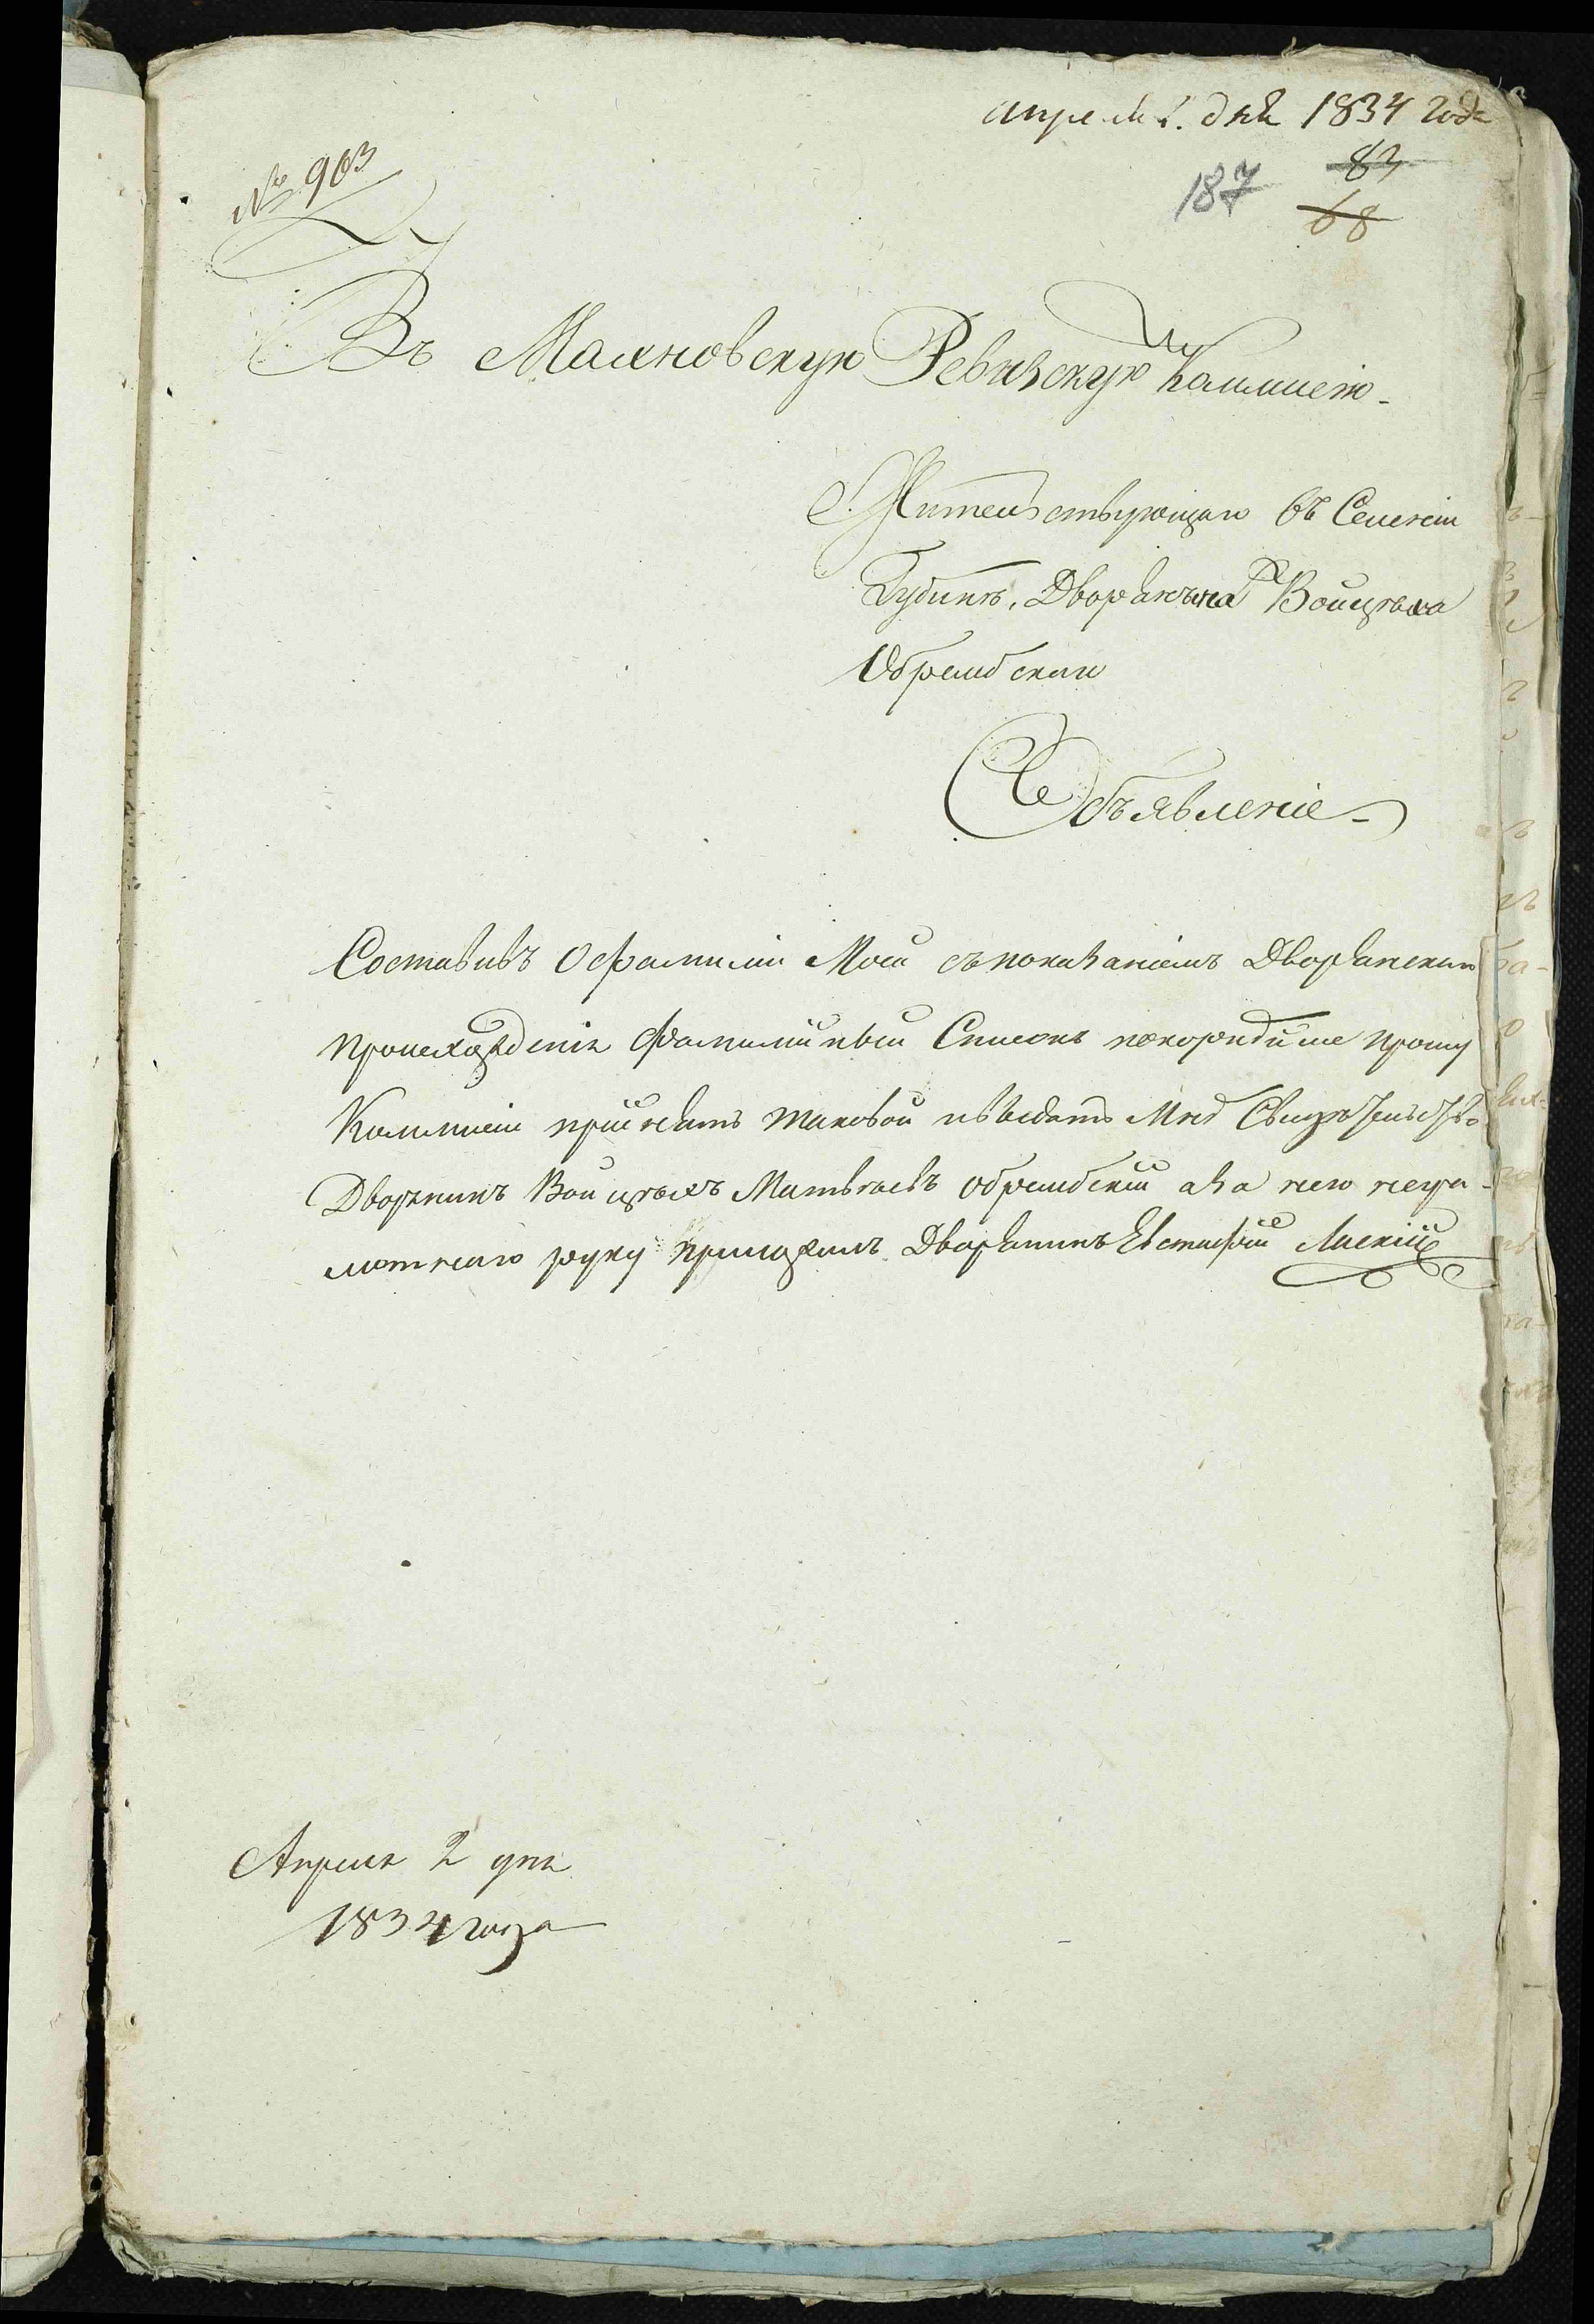 апреля 2. дня 1834 года
№ 903
83
187 68
Въ Махновскую Ревизскую Коммисію
Жительствующаго въ Селеніи
Губинѣ, Дворянина Войцѣха
Обрембскаго
Объявленіе
Составивъ о фамиліи Моей съ показаніемъ Дворянскаго
происхожденія Фамилійный Списокъ покорнѣйше прошу
Коммисіи принять таковой и выдать Мнѣ Свидѣтельство
Дворянинъ Войцѣхъ Матвѣевъ Обрембскій а за него негра-
мотнаго руку приложилъ Дворянинъ Евстафій
Апреля 2 дня
1834 года